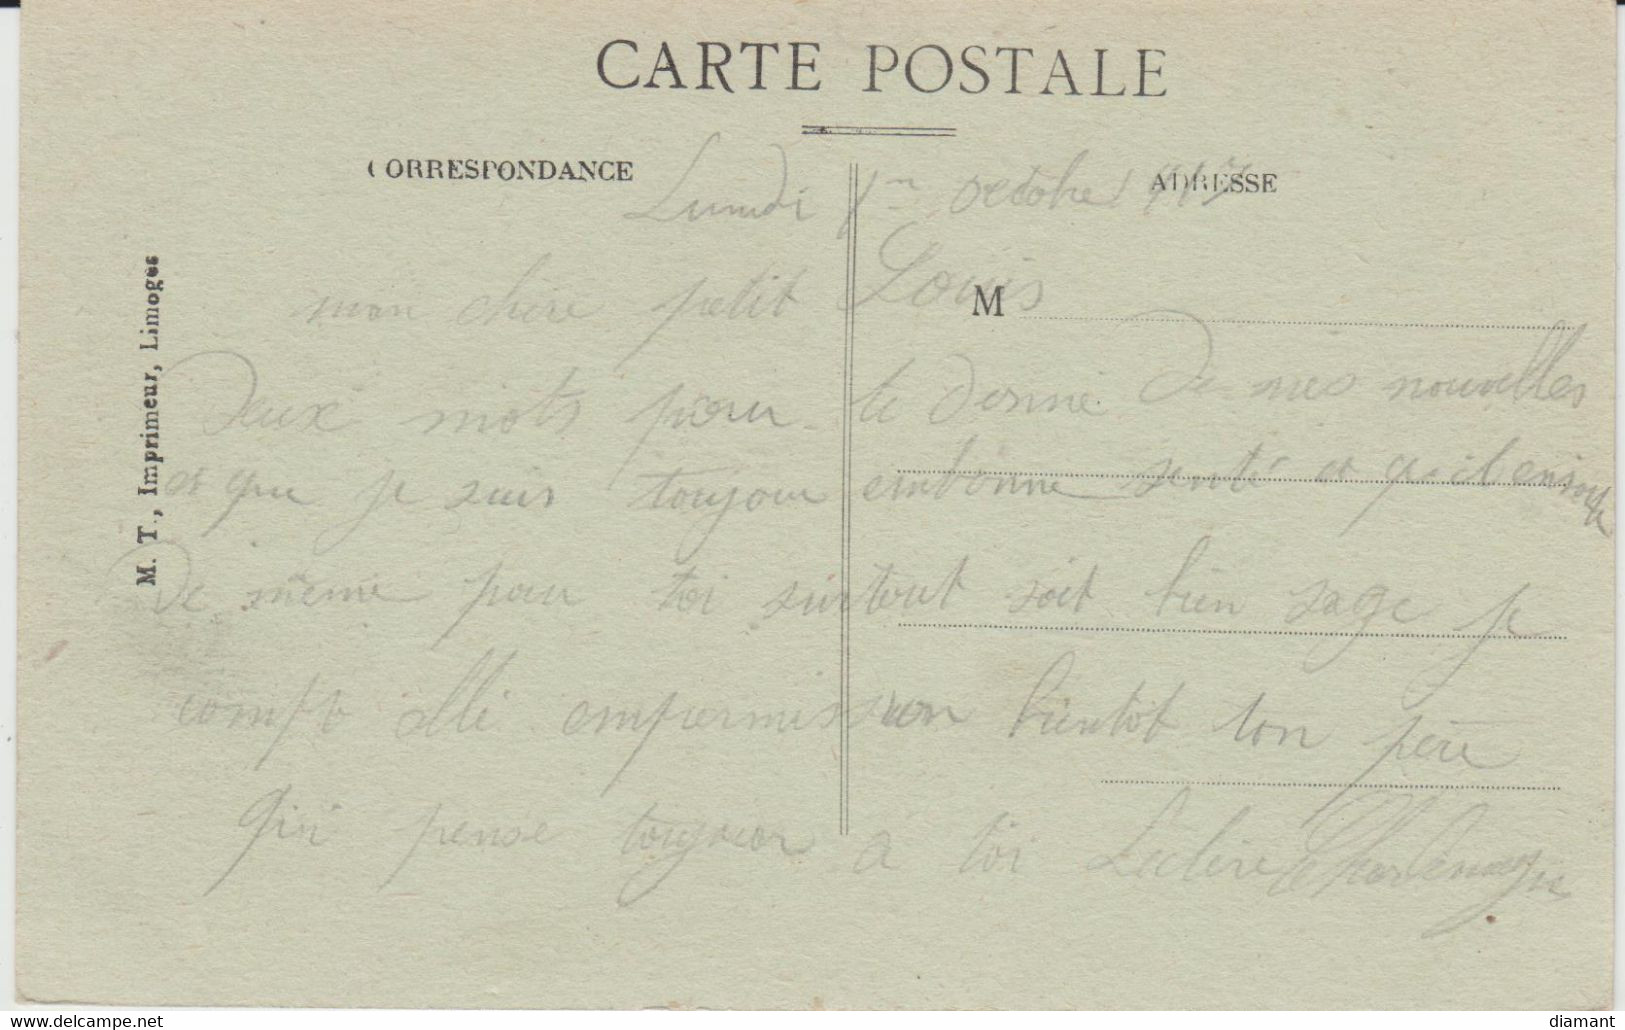 CARTE POSTALE
CORRESPONDANCE
ADRESSE
Lundi 1er octobre 1917
mon chere petit Louis
M
Deux mots pour te donné de mes nouvelles
et que je suis toujour enbonne senté et quil ensoit
de même pour toi surtout soit bien sage je
compt allé enpermission bientot ton père
qui pense toujour à toi Leclère Charlemagne
M. T., Imprimeur, Limoges
www.delcampe.net
diamant